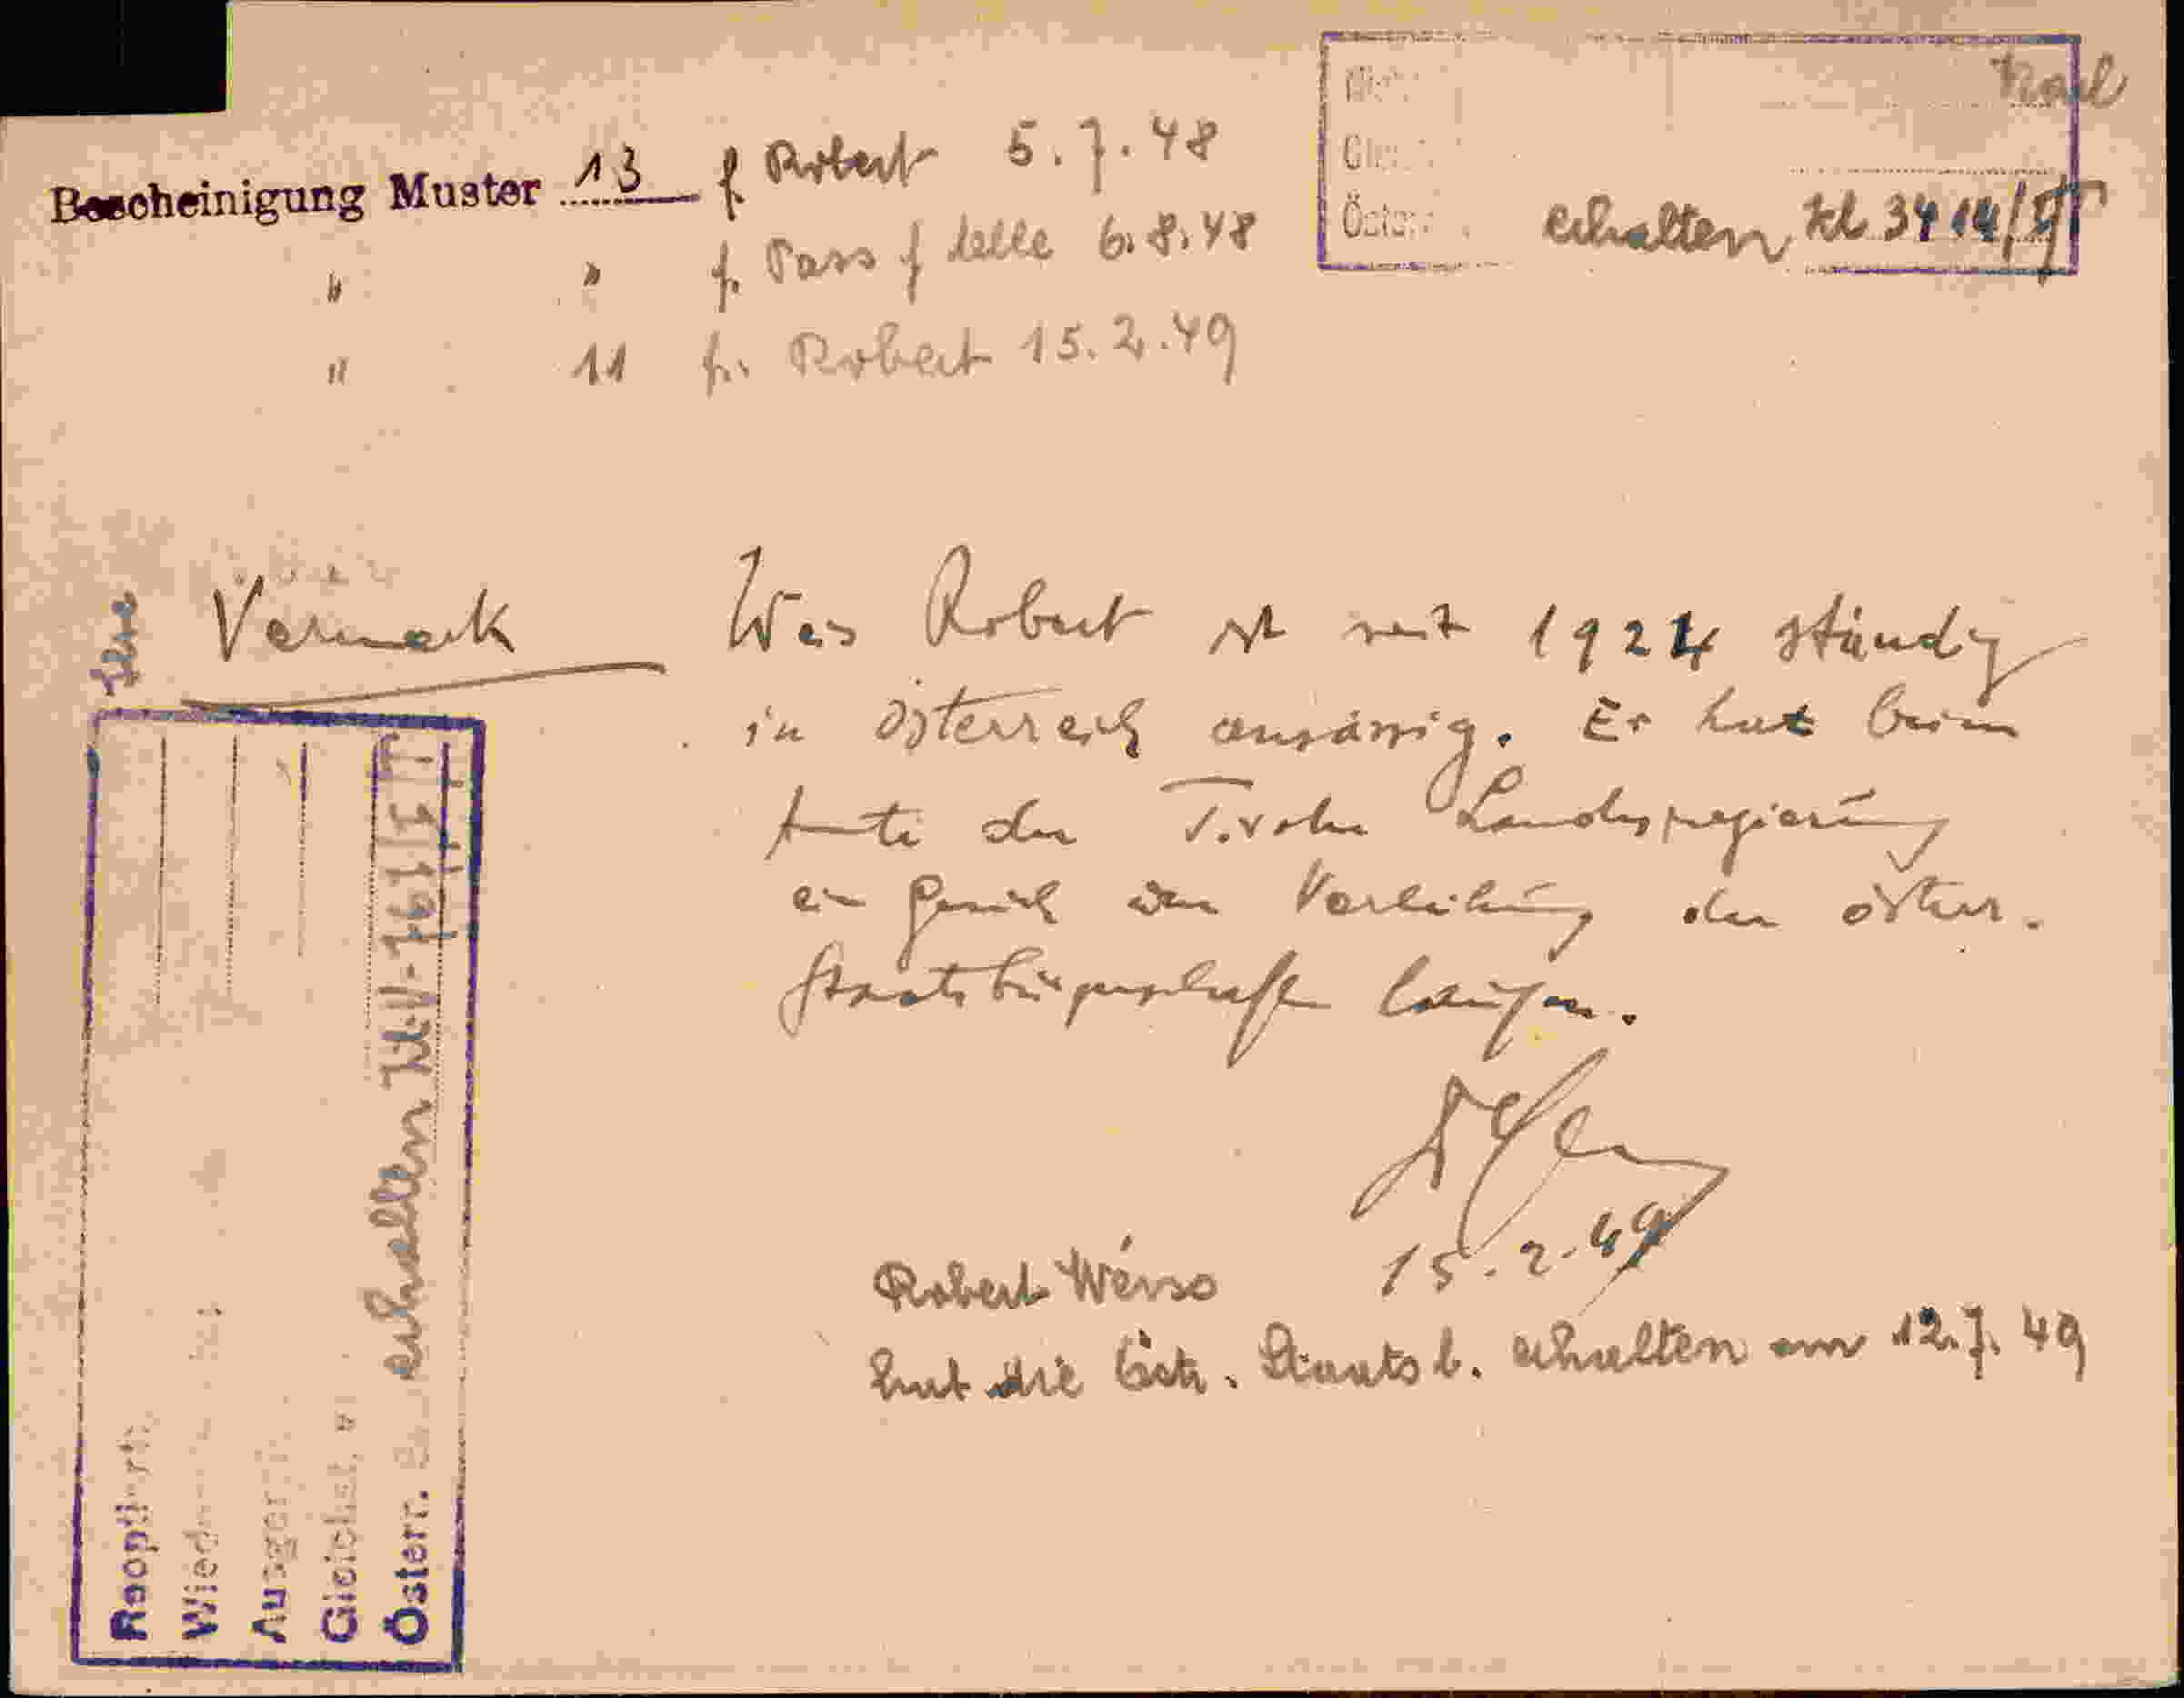 Karl
Bescheinigung Muster 13 f Robert 5.7.48
" " f. Pass f 6.8.48
" 11 f. Robert 15.2.49
Östern. erhalten 3414/
Vermerk Weis Robert ist seit 1924 ständig
in Österreich ansässig. Er hat beim
Amte der Tiroler Landesregierung
ein Gesuch um Verleihung der österr.
Staatsbürgerschaft laufen.
15.2.49
Robert
hat die öst. Staatsb. erhalten am 12.7.49
Ilse
Reopt
Wied
Ausger
Gleichst. v
Österr. erhalten